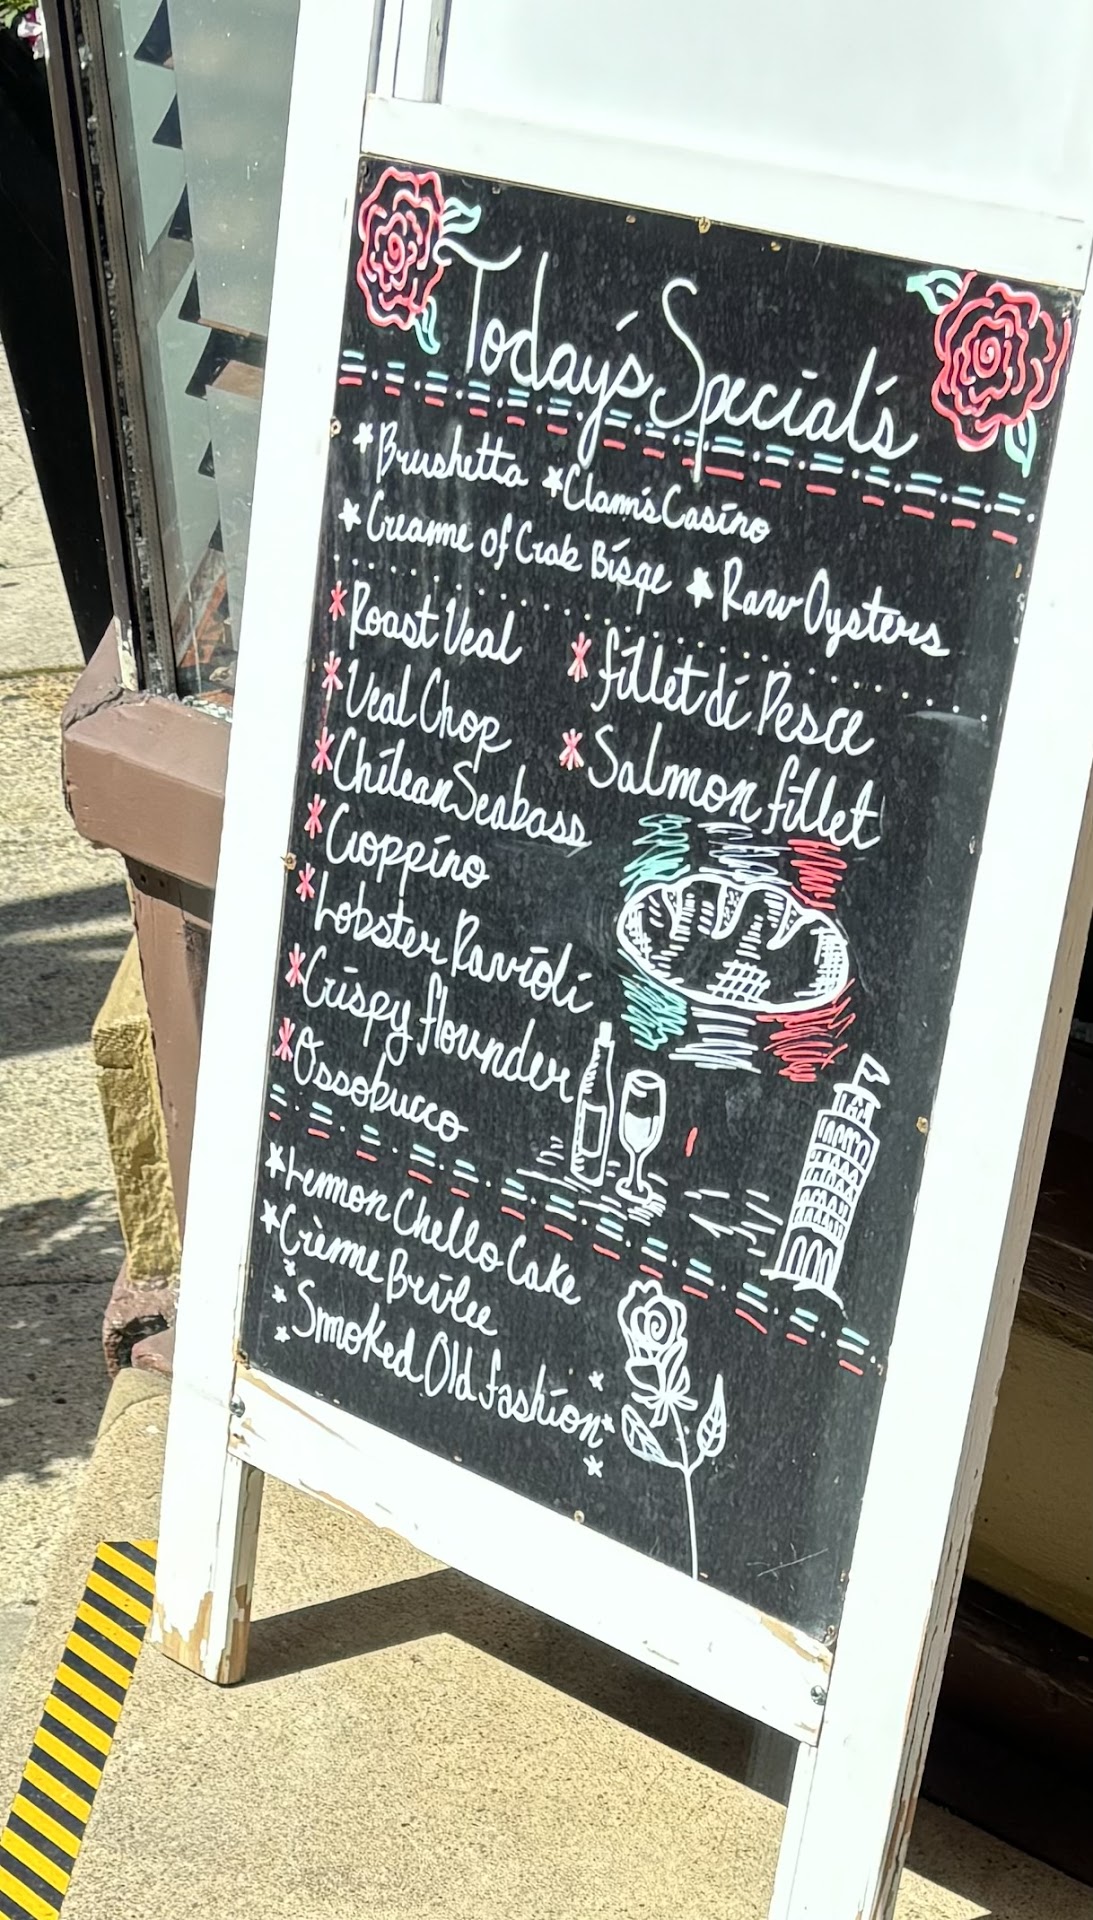 Today's Special's
*Brushetta *Clam's Casino
*Creame of Crab Bisqe *Raw Oysters
*Roast Veal
*Veal Chop
*Chilean Seabass
*Cioppino
*Lobster Ravioli
*Crispy flounder
*Ossobucco
*fillet di Pesce
*Salmon fillet
*Lemon Chello Cake
*Crème Brulee
Smoked Old fashion